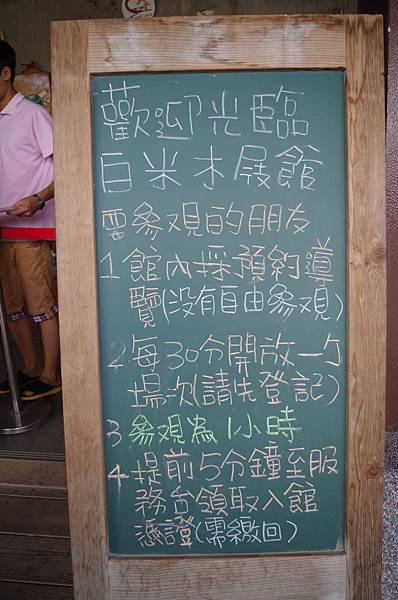 歡迎光臨
白米木屐館
要參观的朋友
1 館內採預約導
覽(没有自由参观)
2. 每30分開放一个
場次(請先登記)
3 參观為1小時
4. 提前5分鐘至服
務台領取入館
憑證(需繳回)